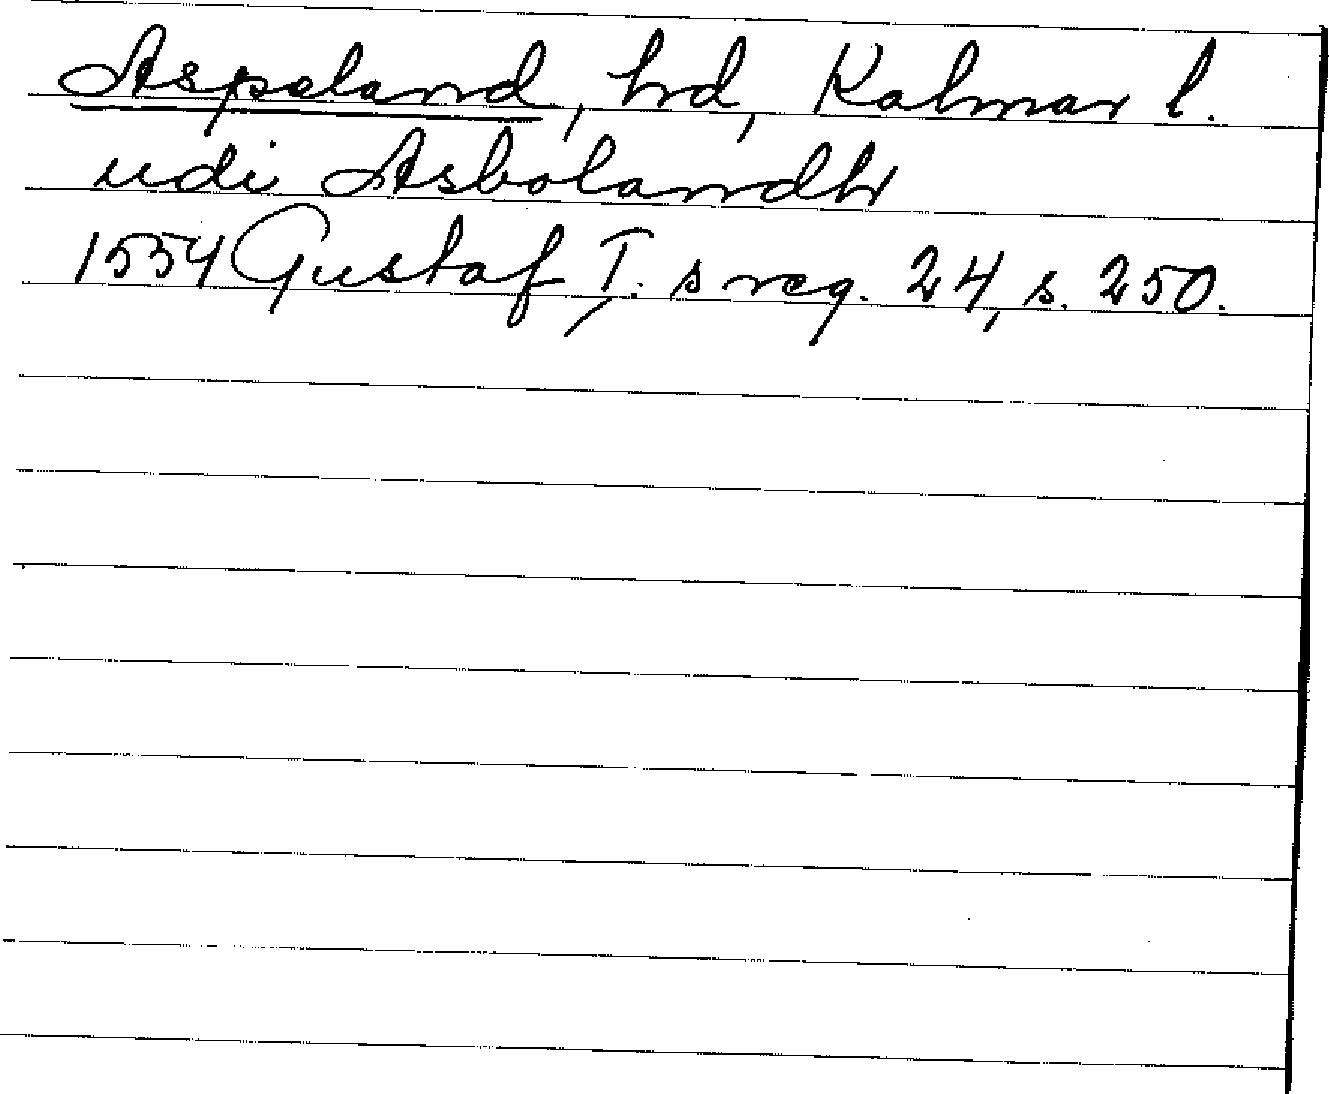 Aspeland, hd, Kalmar l.
udi Asbolandh
1554 Gustaf I:s reg. 24, s. 250.